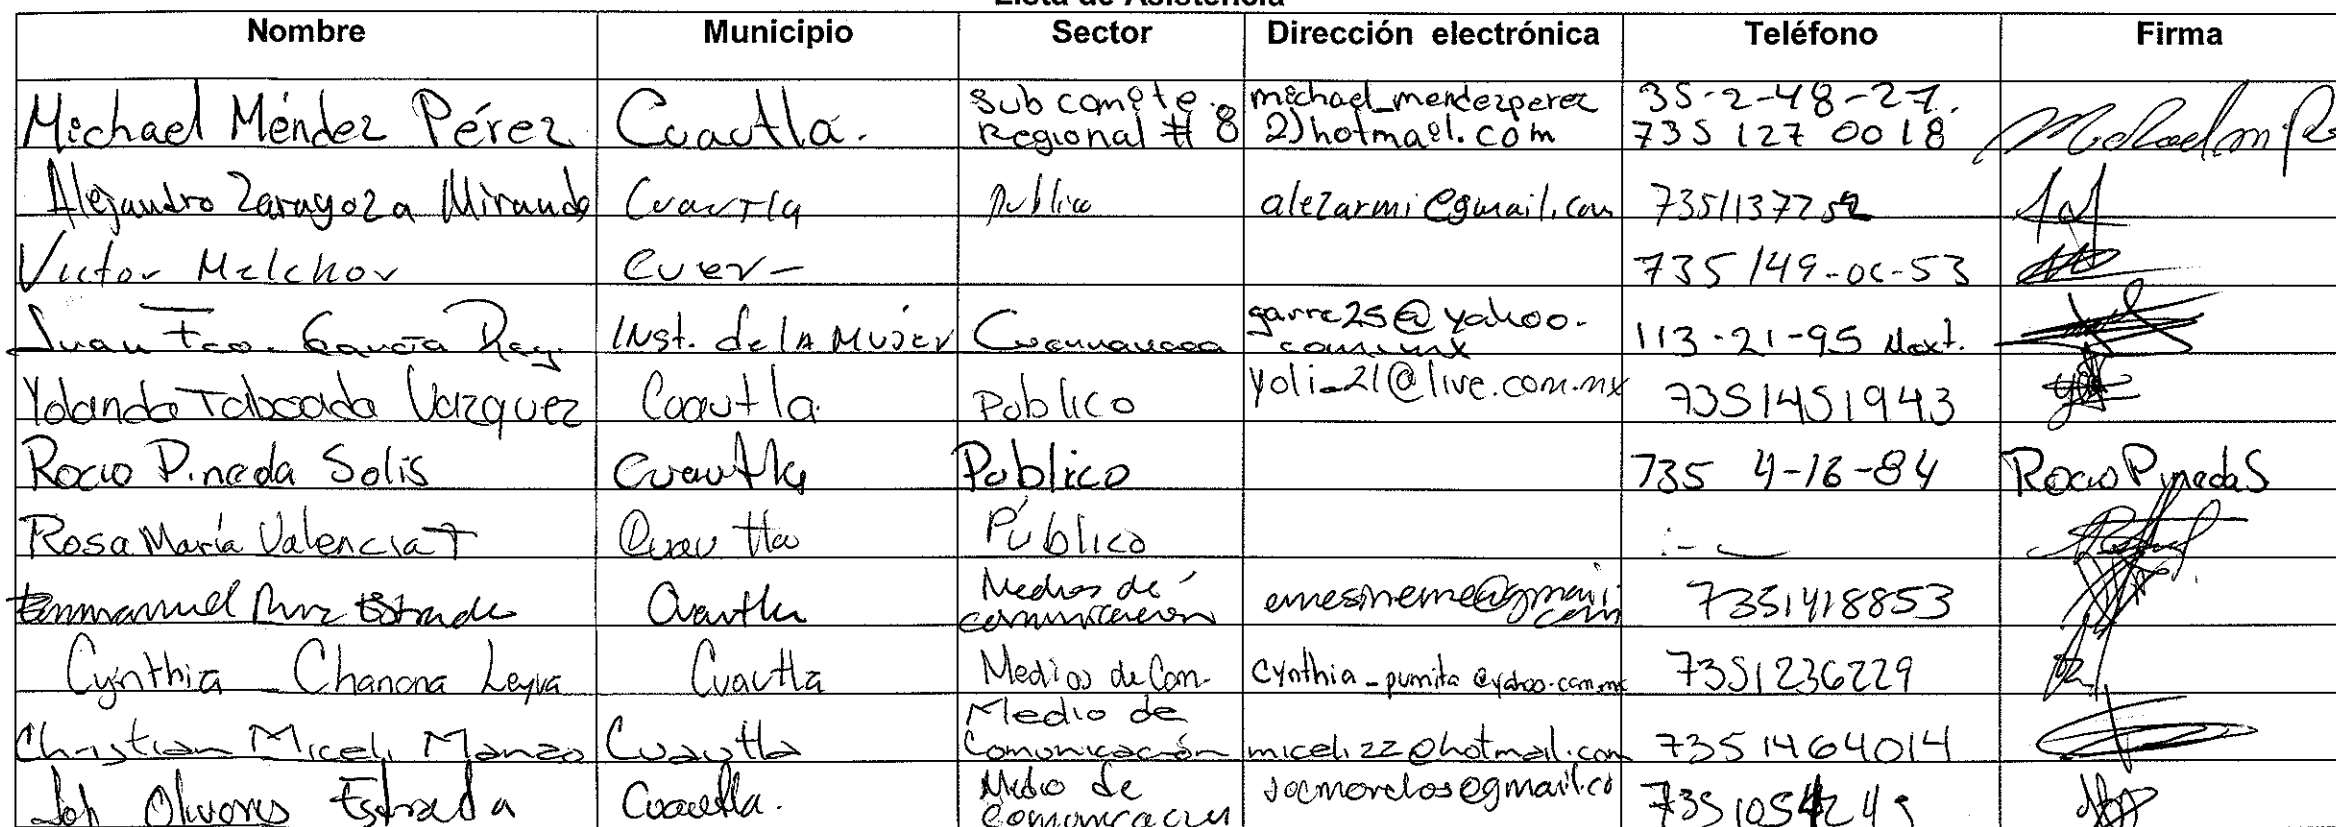 Lista de Asistencia
Nombre Municipio Sector Dirección electrónica Teléfono Firma
Michael Méndez Pérez Cuautla. Sub comite. michael_mendezperez 35-2-48-27.
Regional # 8 2)hotmail.com 735 127 0018
Alejandro Zaragoza Miranda Cuautla Publico alezarmi@gmail.com 7351137752
Victor Melchor Cuer- 735 149-0c-53
Juan Fco. García Rey. Inst. de la Mujer Cuernavaca garre25@yahoo. 113-21-95 Next.
com.mx
Yolanda Taboada Vazquez Cuautla. Publico yoli_21@live.com.mx 7351451943
Rocio Pineda Solis Cuautla Publico 735 4-16-84 Rocio Pineda S
Rosa María Valencia T Cuautla Público
Emmanuel Ruiz Estrada Cuautla Medios de 7351418853
comunicacion
Cynthia Chanona Leyva Cuautla Medios de Com. cynthia_pumita@yahoo.com.mx 7351236229
Christian Miceli Manzo Cuautla Medio de
Comunicación miceli22@hotmail.com 7351464014
Job Olivares Estrada Cuautla. Medio de socmorelos@gmail.co
Comunicacion